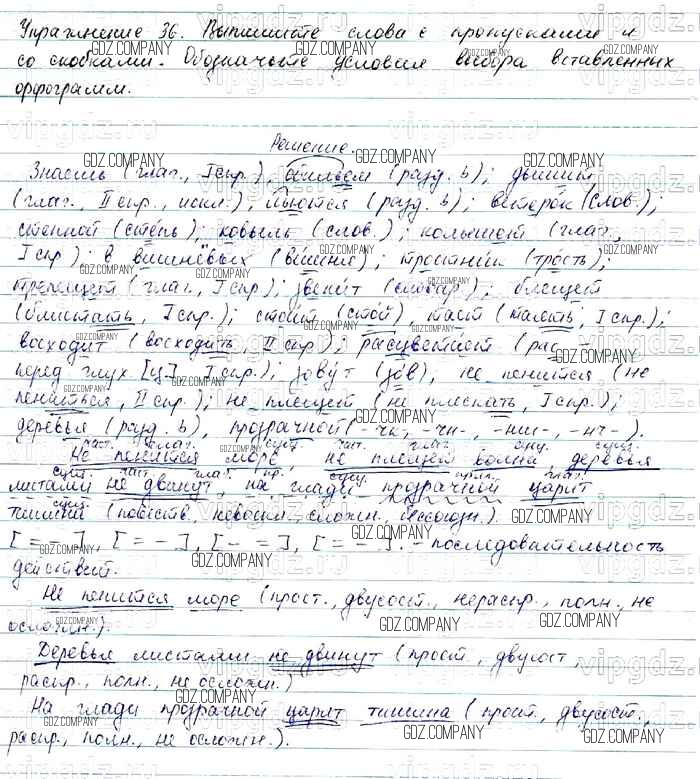 Упражнение 36. Выпишите слова с пропусками и
со скобками. Обозначьте условия выбора вставленных
орфограмм.
Решение.
Знаешь (глаг., I спр.) обильем (разд. ь); дышим
(глаг., II спр., искл.); льются (разд. ь); ветерок (слов.);
степной (степь); ковыль (слов.); колышет (глаг.,
I спр.); в вишнёвых (вишня); тростник (трость);
трепещет (глаг., I спр.); звенит (словар); блещет
(блистать, I спр.); стоит (стой) тает (таять, I спр.);
восходит (восходить, II спр.); расцветает (рас –
перед глух. [ц], I спр.); зовут (зов), не пенится (не
пениться, II спр.); не плещет (не плескать, I спр.);
деревья (разд. ь), прозрачной (-чк-, -чн-, -нщ-, -нч-).
Не пенится море, не плещет волна, деревья
листами не двинут, на глади прозрачной царит
тишина (повеств., невоскл., сложн., бессоюзн.).
[= –], [= –], [– =], [= –]. – последовательность
действий.
Не пенится море (прост., двусост., нераспр., полн., не
осложн.).
Деревья листами не двинут (прост., двусост.,
распр., полн., не осложн.)
На глади прозрачной царит тишина (прост., двусост.,
распр., полн., не осложн.).